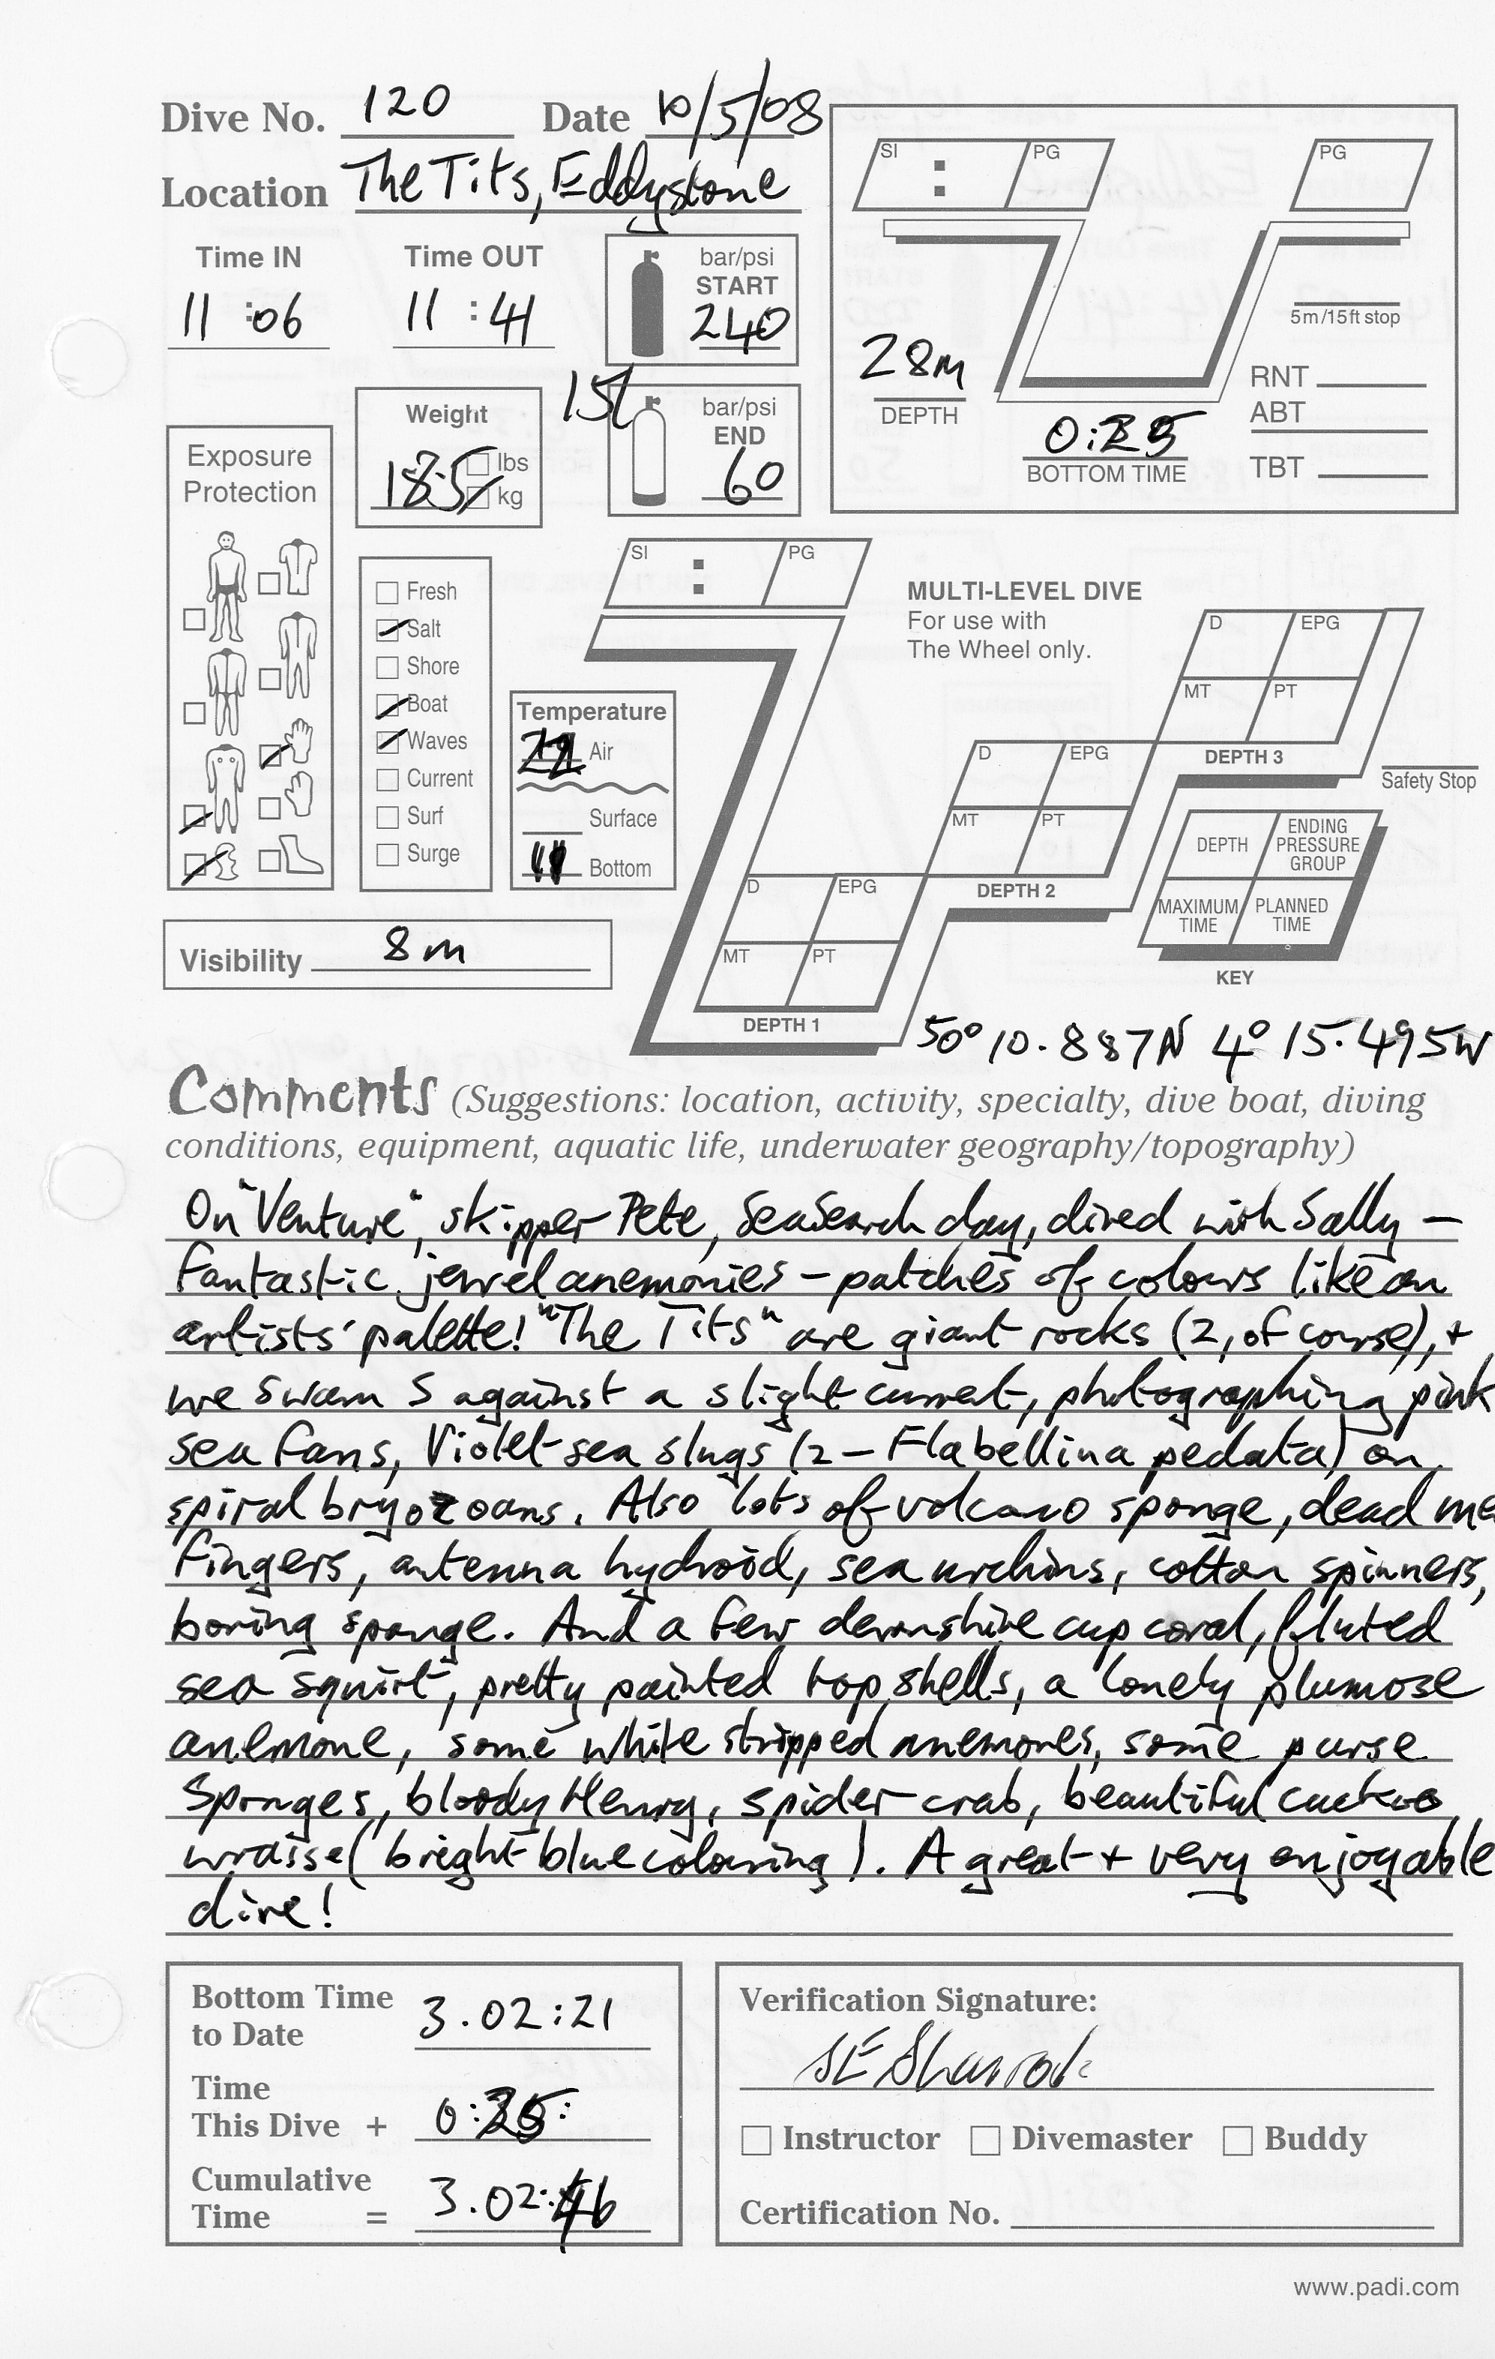 Dive No. 120 Date 10/5/08
Location The Tits, Eddystone
SI : PG PG
Time IN Time OUT
11 :06 11 : 41
bar/psi
START
240
5m/15ft stop
28m
DEPTH
0:25
BOTTOM TIME
RNT
ABT
TBT
15l
bar/psi
END
60
Weight
18.5 lbs
kg
Exposure
Protection
Fresh
Salt
Shore
Boat
Waves
Current
Surf
Surge
Temperature
Air
Surface
11 Bottom
SI : PG
MULTI-LEVEL DIVE
For use with
The Wheel only.
D EPG
MT PT
DEPTH 3
Safety Stop
D EPG
MT PT
DEPTH 2
D EPG
MT PT
DEPTH 1
DEPTH ENDING PRESSURE GROUP
MAXIMUM TIME PLANNED TIME
KEY
Visibility 8m
50° 10.887N 4° 15.495W
Comments (Suggestions: location, activity, specialty, dive boat, diving
conditions, equipment, aquatic life, underwater geography/topography)
On "Venture", skipper Pete, SeaSearch day, dived with Sally –
Fantastic jewel anemonies – patches of colours like an
artists' palette! "The Tits" are giant rocks (2, of course), +
we swam S against a slight current, photographing pink
sea fans, Violet sea slugs (2 – Flabellina pedata) on
spiral bryozoans. Also lots of volcano sponge, dead me
fingers, antenna hydroid, sea urchins, cotton spinners,
boring sponge. And a few devonshire cup coral, fluted
sea squirt, pretty painted top shells, a lonely plumose
anemone, some white stripped anemones, some purse
sponges, bloody Henry, spider crab, beautiful cuckoo
wrasse (bright blue colouring). A great + very enjoyable
dive!
Bottom Time
to Date 3.02:21
Time
This Dive + 0:25:
Cumulative
Time = 3.02:46
Verification Signature:
Instructor Divemaster Buddy
Certification No.
www.padi.com